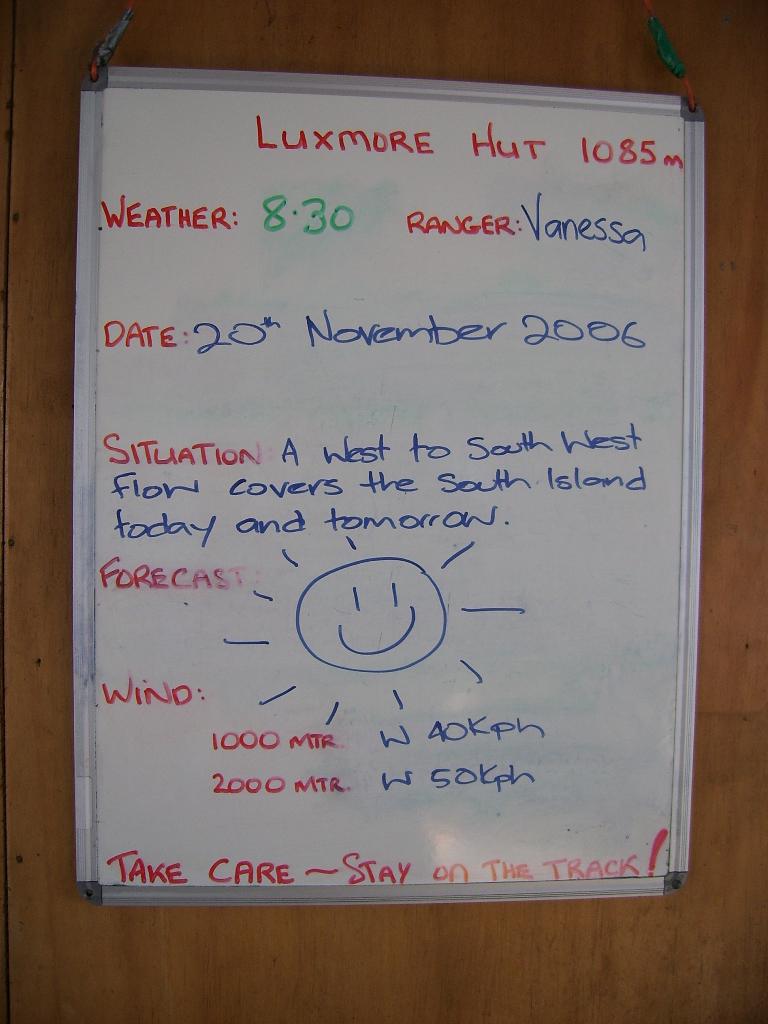 LUXMORE HUT 1085m
WEATHER: 8·30 RANGER: Vanessa
DATE: 20th November 2006
SITUATION A West to South West
flow covers the South Island
today and tomorrow.
FORECAST:
WIND:
1000 MTR. W 40Kph
2000 MTR. W 50Kph
TAKE CARE ~ STAY ON THE TRACK!